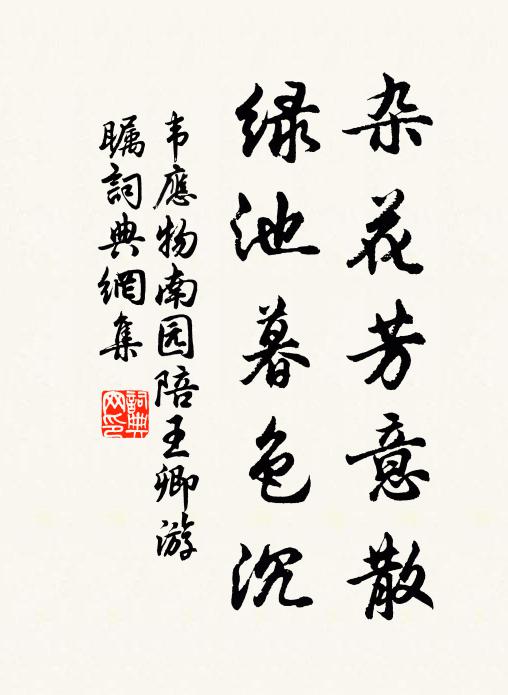 杂花芳意散
绿池暮色沉
韦應物南园陪王卿游
瞩詞典網集
詞典网印